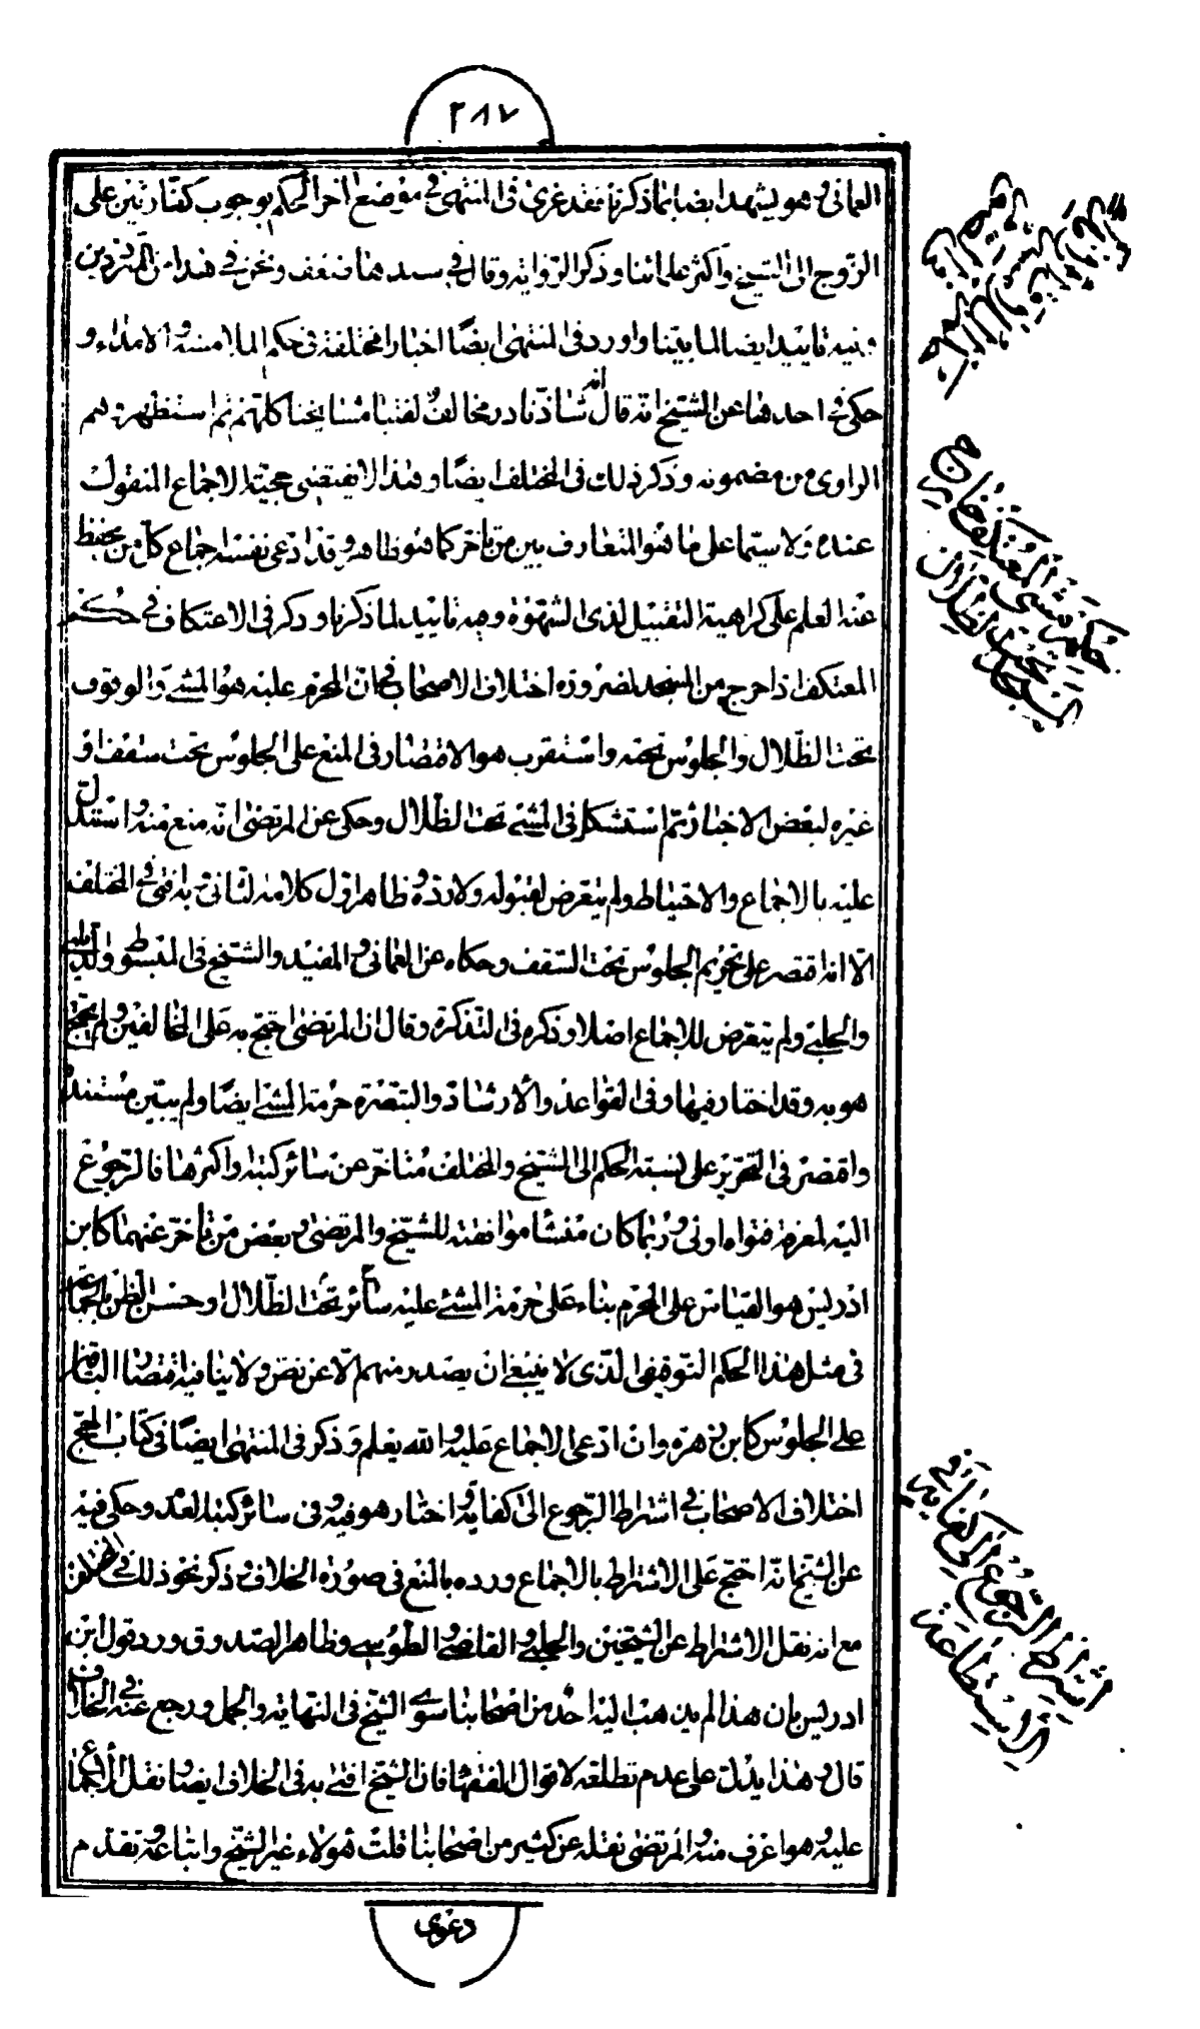 ٢٨٧
العماني وهو يشهد ايضا بما ذكرنا فقد عزى في المنتهى في موضع اخر الحكم بوجوب كفارتين على
الزوج الى الشيخ واكثر علمائنا وذكر الرواية وقال في سندها ضعف ونحن في هذا من المترددين
وفيه تاييد ايضا لما بيّنا واورد في المنتهى ايضًا اخبارا مختلفة في حكم الملامسة والامذاء و
حكى في احدها عن الشيخ انه قال انه شاذ نادر مخالف لفتيا مشايخنا كلهم ثم استظهر وهم
الراوي من مضمونه وذكر ذلك في المختلف ايضًا وهذا لا يقتضي حجية الاجماع المنقول
عنده ولا سيما على ما هو المتعارف بين من تاخر كما هو ظاهر وقد ادعى نفسه اجماع كل من يحفظ
عنه العلم على كراهية التقبيل لذي الشهوة وفيه تاييد لما ذكرنا وذكر في الاعتكاف في حكم
المعتكف اذا خرج من المسجد لضرورة اختلاف الاصحاب في ان المحرم عليه هو المشي والوقوف
تحت الظلال والجلوس تحته واستقرب هو الاقتصار في المنع على الجلوس تحت سقف او
غيره لبعض الاخبار ثم استشكل في المشي تحت الظلال وحكى عن المرتضى انه منع منه واستدل
عليه بالاجماع والاحتياط ولم يتعرض لقبوله ولا رده وظاهر اول كلامه الثاني وبه افتى في المختلف
الا انه اقتصر على تحريم الجلوس تحت السقف وحكاه عن العماني والمفيد والشيخ في المبسوط والديلمي
والحلبي ولم يتعرض للاجماع اصلا وذكره في التذكرة وقال ان المرتضى احتج به على المخالفين ولم يحتج
هو به وقد اختار فيها وفي القواعد والارشاد والتبصرة حرمة المشي ايضًا ولم يبين مستنده
واقتصر في التحرير على نسبة الحكم الى الشيخ والمختلف متاخر عن سائر كتبه واكثرها فالرجوع
اليه لمعرفة فتواه اولى وربما كان منشا موافقته للشيخ والمرتضى وبعض من تاخر عنهما كابن
ادريس هو القياس على المحرم بناء على حرمة المشي عليه سائرا تحت الظلال او حسن الظن بالجماعة
في مثل هذا الحكم التوقيفي الذي لا ينبغي ان يصدر منهم الا عن نص ولا ينافيه اقتصار الباقين
على الجلوس كابن زهرة وان ادعى الاجماع عليه والله يعلم وذكر في المنتهى ايضًا في كتاب الحج
اختلاف الاصحاب في اشتراط الرجوع الى كفاية واختار هو فيه وفي سائر كتبه العدم وحكى فيه
عن الشيخ انه احتج على الاشتراط بالاجماع ورده بالمنع في صورة الخلاف وذكر نحو ذلك في المختلف
مع انه نقل الاشتراط عن الشيخين والحلبي والقاضي والطوسي وظاهر الصدوق ورد قول ابن
ادريس بان هذا لم يذهب اليه احد من اصحابنا سوى الشيخ في النهاية والجمل ورجع عنه في الخلاف
قال وهذا يدل على عدم تطلعه لاقوال الفقهاء فان الشيخ افتى به في الخلاف ايضا ونقل الاجماع
عليه وهو اعرف منه والمرتضى نقله عن كثير من اصحابنا قلت هؤلاء غير الشيخ واتباعه وتقدم
دعوى
حكم مشي المعتكف خارج
المسجد تحت الظلال
اشتراط الرجوع الى كفاية في
الاستطاعة